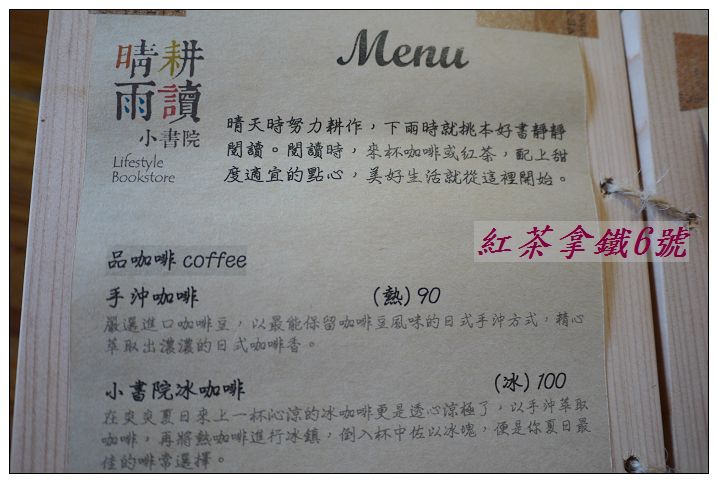 Menu
晴耕
雨讀
小書院
Lifestyle
Bookstore
晴天時努力耕作，下雨時就挑本好書靜靜
閱讀。閱讀時，來杯咖啡或紅茶，配上甜
度適宜的點心，美好生活就從這裡開始。
紅茶拿鐵6號
品咖啡 coffee
手沖咖啡 (熱) 90
嚴選進口咖啡豆，以最能保留咖啡豆風味的日式手沖方式，精心
萃取出濃濃的日式咖啡香。
小書院冰咖啡 (冰) 100
在炎炎夏日來上一杯沁涼的冰咖啡更是透心涼極了，以手沖萃取
咖啡，再將熱咖啡進行冰鎮，倒入杯中佐以冰塊，便是你夏日最
佳的啡常選擇。